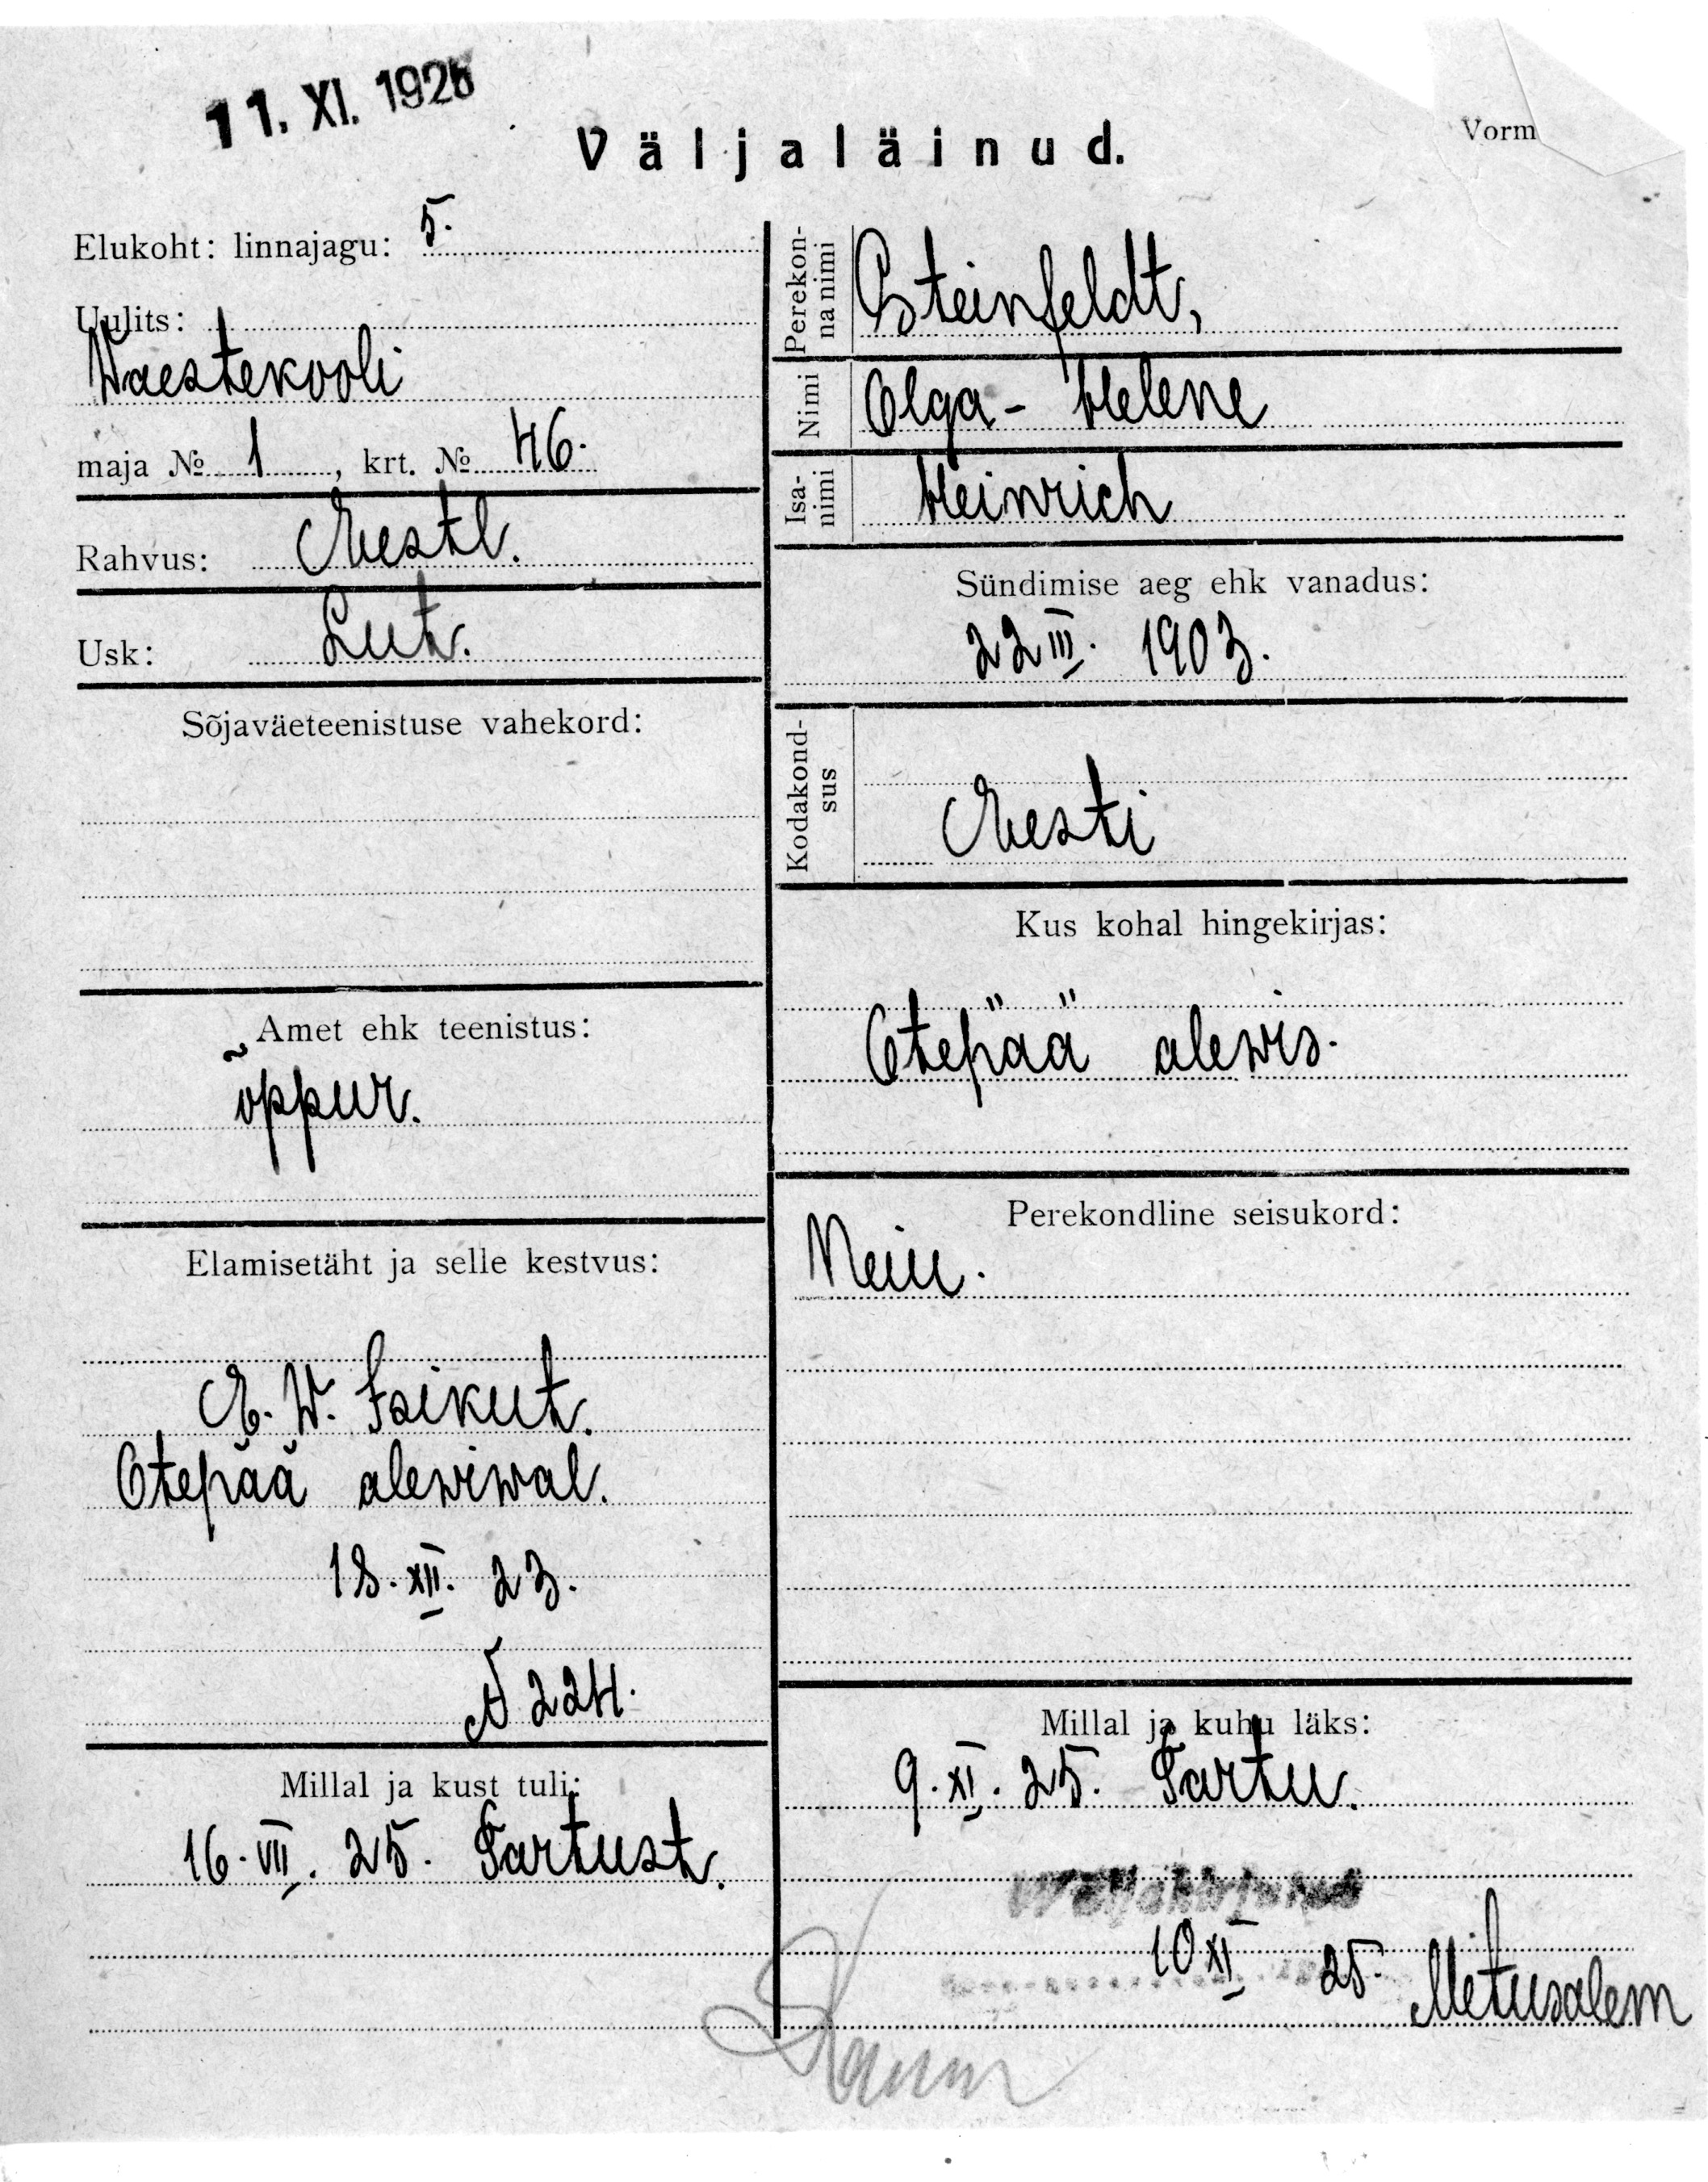 11. XI. 1925
Väljaläinud.
Vorm
Elukoht: linnajagu: 5.
Uulits:
Waestekooli
maja № 1, krt. № 46.
Rahvus: Eestl.
Usk: Lut.
Sõjaväeteenistuse vahekord:
Amet ehk teenistus:
õppur.
Elamisetäht ja selle kestvus:
E. W. Isikut.
Otepää alewiwal.
18. XII. 23.
№ 224.
Millal ja kust tuli:
16. VII. 25. Tartust.
Perekonnanimi
Steinfeldt,
Nimi
Olga - Helene
Isanimi
Heinrich
Sündimise aeg ehk vanadus:
22 III. 1903.
Kodakondsus
Eesti
Kus kohal hingekirjas:
Otepää alewis.
Perekondline seisukord:
Neiu.
Millal ja kuhu läks:
9. XI. 25. Tartu.
Väljakirjutud
10 XI 25. Metusalem